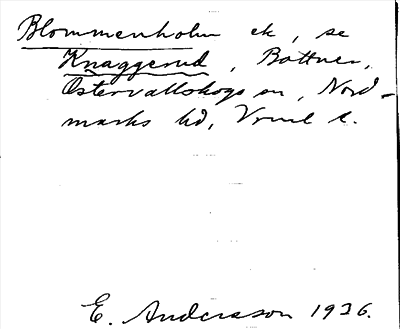 Blommenholm ek, se
Knaggerud, Bottnen,
Östervallskogs sn, Nord-
marks hd, Vrml l.
E. Andersson 1926.